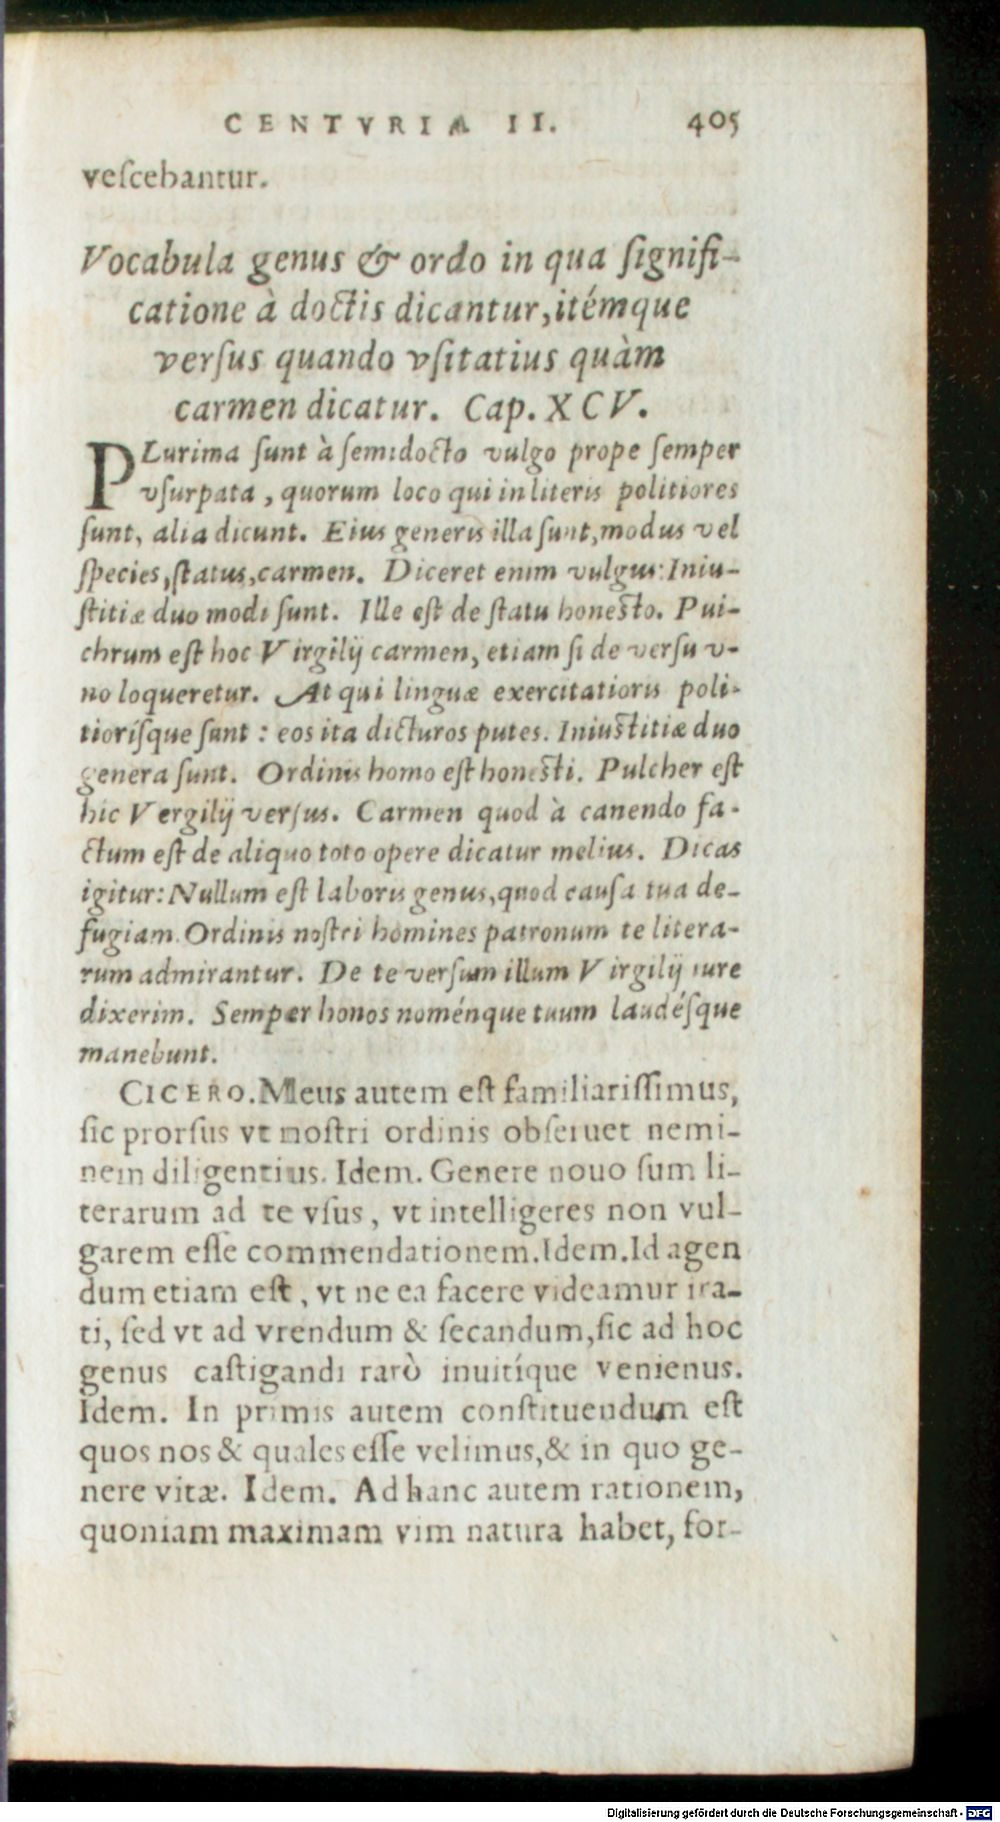 CENTVRIA II. 405
veſcebantur.
Vocabula genus & ordo in qua ſignifi-
catione à doctis dicantur, itémque
verſus quando vſitatius quàm
carmen dicatur. Cap. XCV.
PLurima ſunt à ſemidocto vulgo prope ſemper
vſurpata, quorum loco qui in literis politiores
ſunt, alia dicunt. Eius generis illa ſunt, modus vel
ſpecies, ſtatus, carmen. Diceret enim vulgus: Iniu-
ſtitiæ duo modi ſunt. Ille eſt de ſtatu honeſto. Pul-
chrum eſt hoc Virgilij carmen, etiam ſi de verſu v-
no loqueretur. At qui linguæ exercitatioris poli-
tioríſque ſunt: eos ita dicturos putes. Iniuſtitiæ duo
genera ſunt. Ordinis homo eſt honeſti. Pulcher eſt
hic Vergilij verſus. Carmen quod à canendo fa-
ctum eſt de aliquo toto opere dicatur melius. Dicas
igitur: Nullum eſt laboris genus, quod cauſa tua de-
fugiam. Ordinis noſtri homines patronum te litera-
rum admirantur. De te verſum illum Virgilij iure
dixerim. Semper honos noménque tuum laudéſque
manebunt.
CICERO. Meus autem eſt familiariſſimus,
ſic prorſus vt noſtri ordinis obſeruet nemi-
nem diligentius. Idem. Genere nouo ſum li-
terarum ad te vſus, vt intelligeres non vul-
garem eſſe commendationem. Idem. Id agen
dum etiam eſt, vt ne ea facere videamur ira-
ti, ſed vt ad vrendum & ſecandum, ſic ad hoc
genus caſtigandi rarò inuitíque venienus.
Idem. In primis autem conſtituendum eſt
quos nos & quales eſſe velimus, & in quo ge-
nere vitæ. Idem. Ad hanc autem rationem,
quoniam maximam vim natura habet, for-
Digitalisierung gefördert durch die Deutsche Forschungsgemeinschaft - DFG